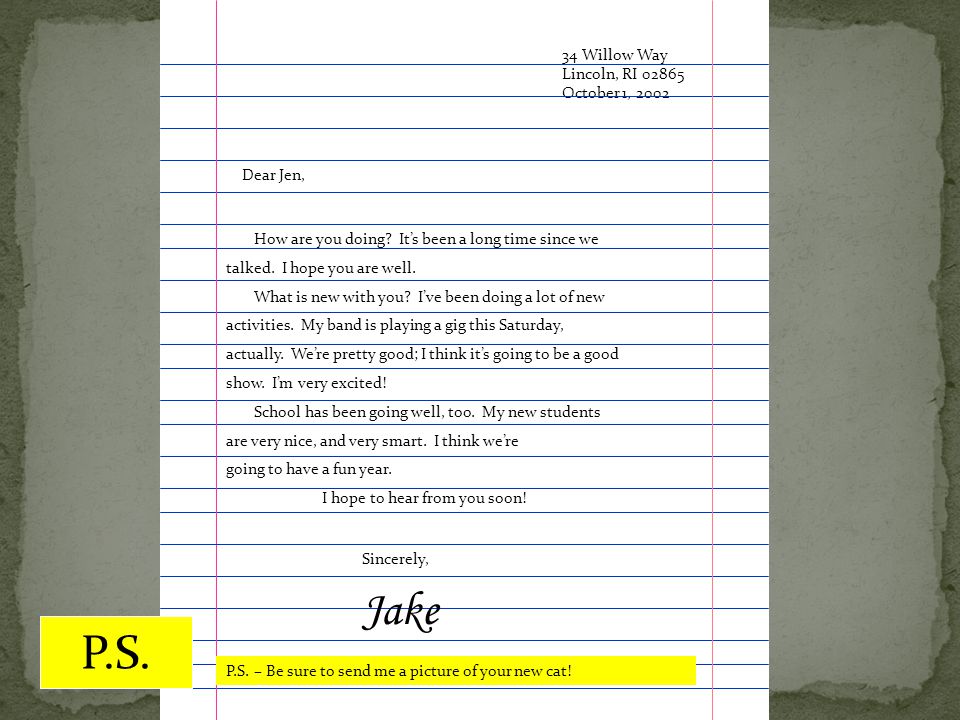 34 Willow Way
Lincoln, RI 02865
October 1, 2002
Dear Jen,
How are you doing?  It’s been a long time since we
talked.  I hope you are well.
What is new with you?  I’ve been doing a lot of new
activities.  My band is playing a gig this Saturday,
actually.  We’re pretty good; I think it’s going to be a good
show.  I’m very excited!
School has been going well, too.  My new students
are very nice, and very smart.  I think we’re
going to have a fun year.
I hope to hear from you soon!
Sincerely,
Jake
P.S.
P.S. – Be sure to send me a picture of your new cat!